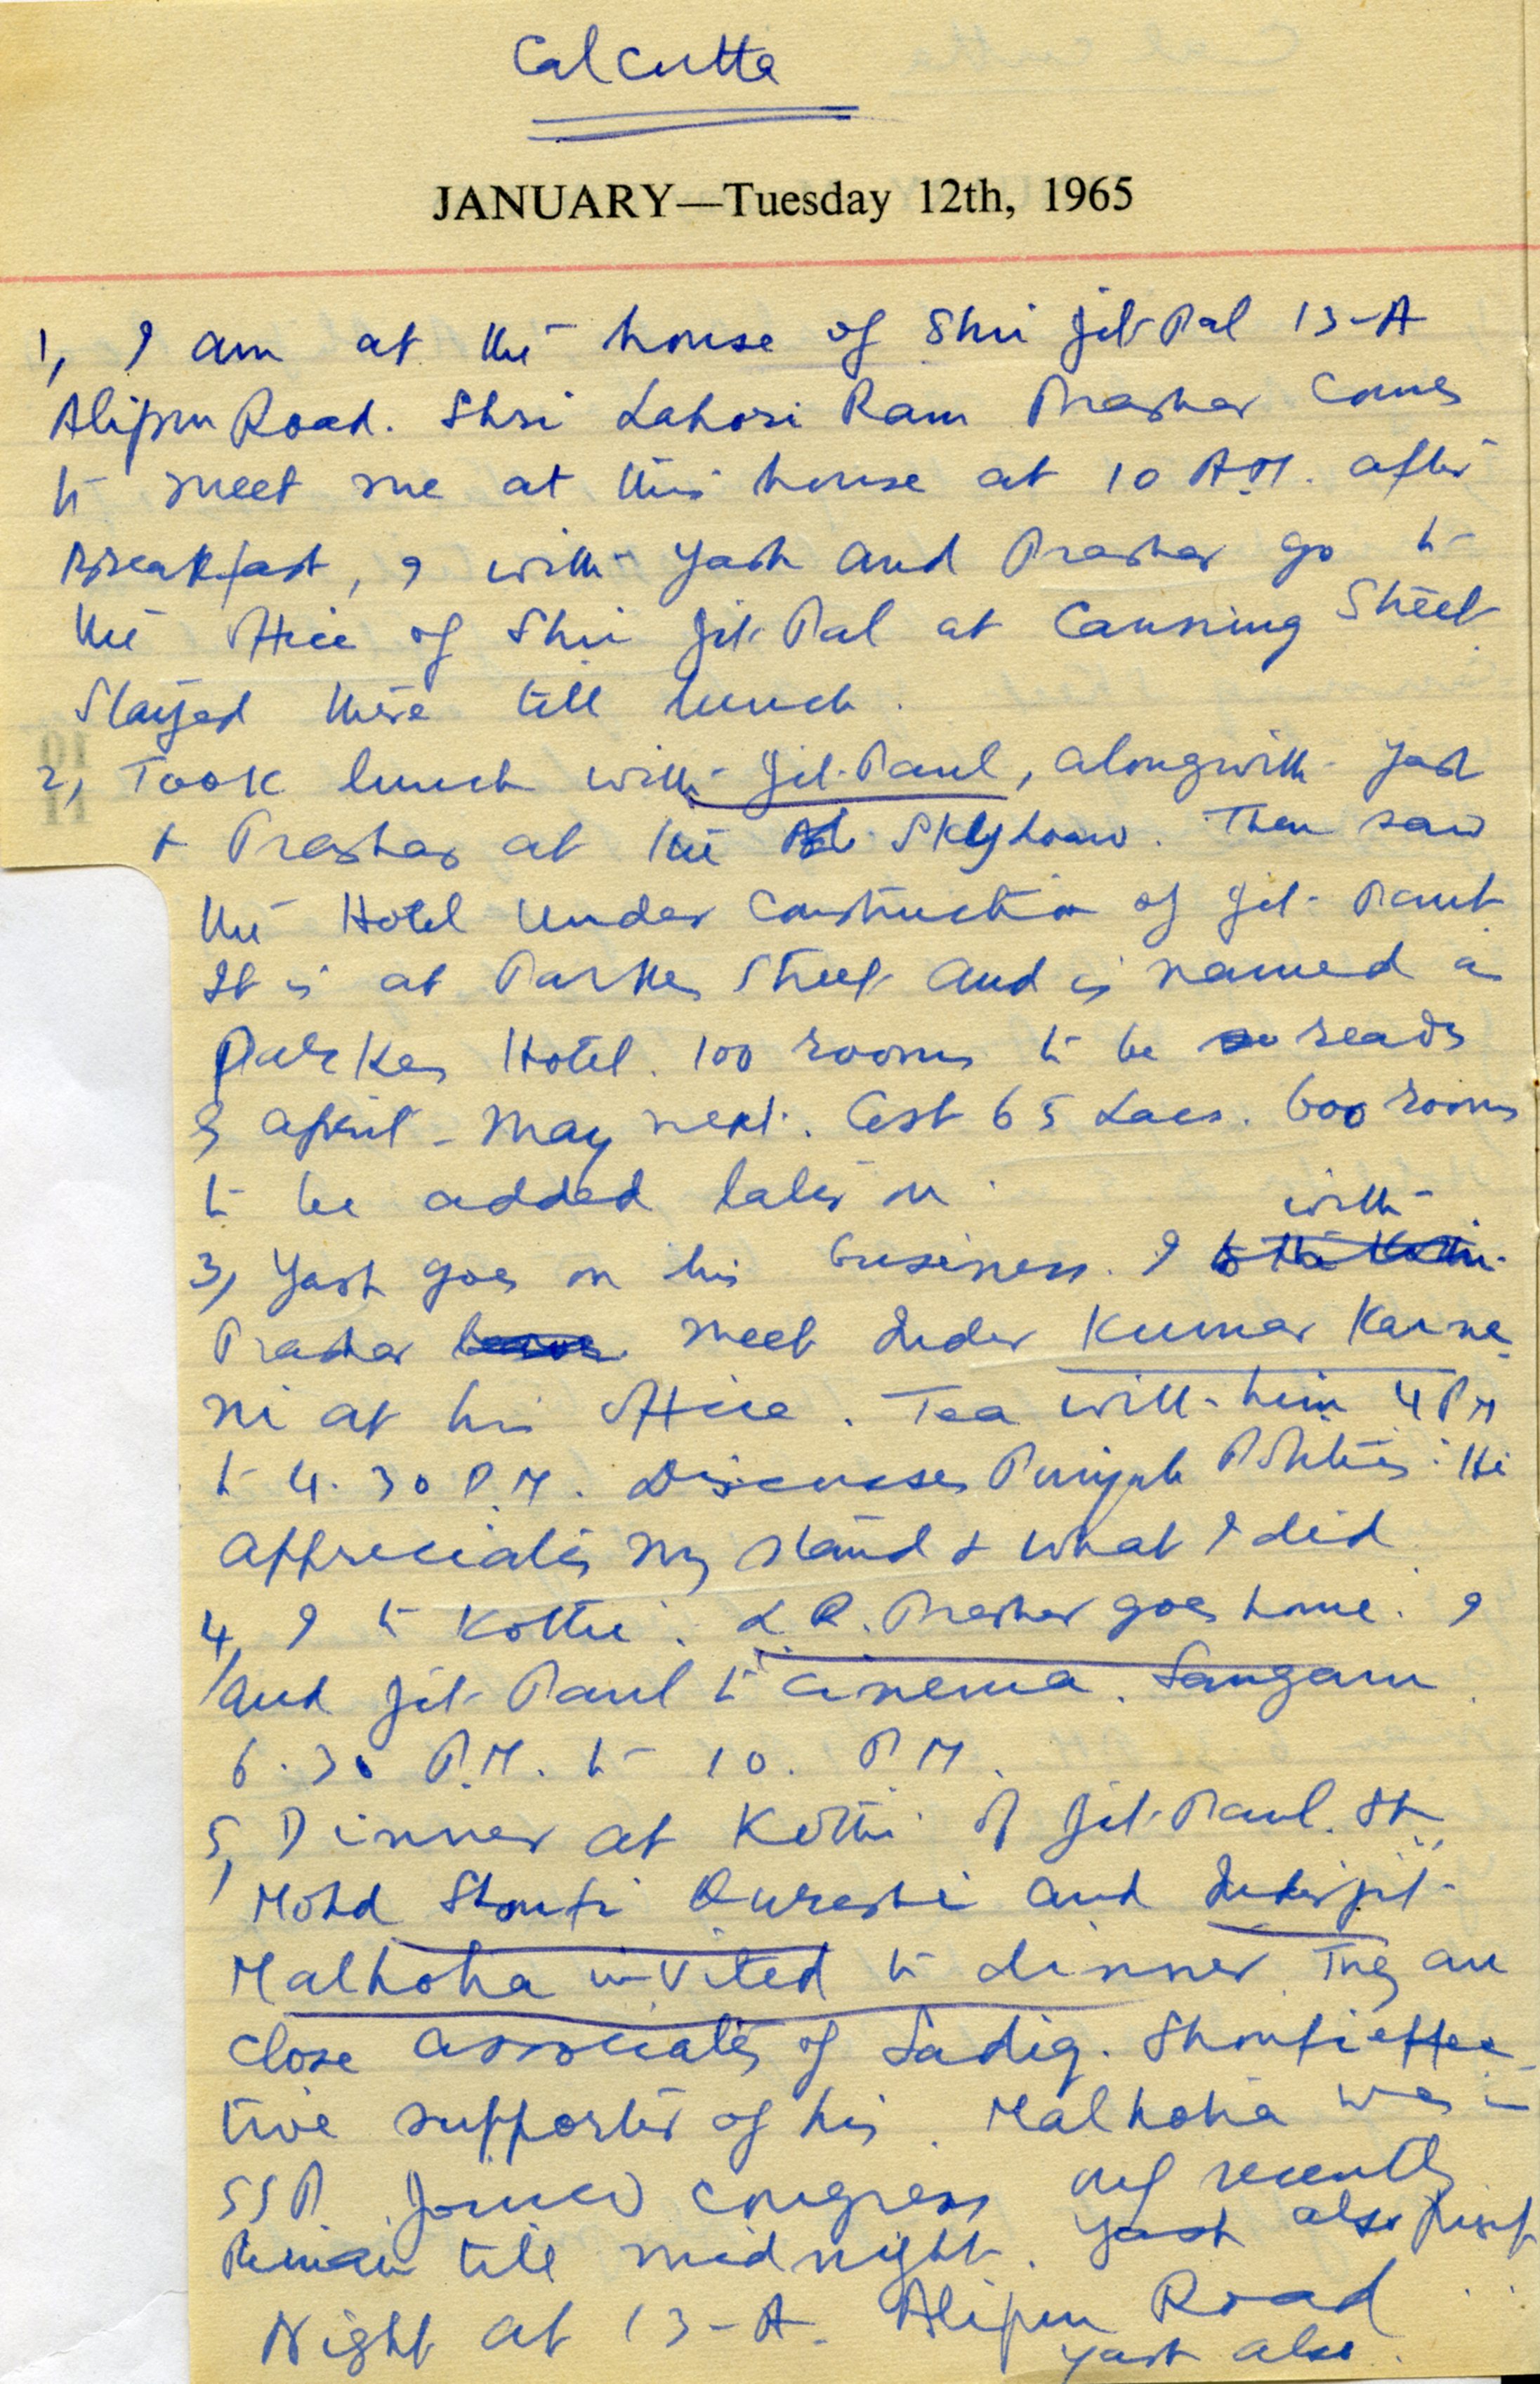 Calcutta
JANUARY—Tuesday 12th, 1965
1, I am at the house of Shri Jit Pal 13-A
Alipur Road. Shri Lahori Ram Prashar comes
to meet me at this house at 10 A.M. after
Breakfast, I with Yash and Prashar go to
the office of Shri Jit Pal at Canning Street
Stayed there till lunch.
2, Took lunch with Jit. Paul, alongwith Yash
+ Prashar at the Skyhouse. Then saw
the Hotel under construction of Jit. Paul
It is at Parke Street and is named as
Parkes Hotel. 100 rooms to be ready
by April - May next. Cost 65 Lacs. 600 rooms
to be added later on.
3, Yash goes on his business. I with
Prashar meet Inder Kumar Karna
ni at his office. Tea with him 4 PM
to 4.30 P.M. Discusses Punjab Politics. He
appreciates my stand + what I did
4, I to Kothi. L.R. Prashar goes home. I
and Jit Paul to cinema. Sangam.
6.30 P.M. to 10. P.M.
5, Dinner at Kothi of Jit. Paul. Sh.
Mohd Shoufi Qureshi and Inderjit
Malhotra invited to dinner. They are
close associates of Sadiq. Shoufi effec
tive supporter of his. Malhotra was in
SSP. Joined congress only recently
Remain till midnight. Yash also
Night at 13-A. Alipur Road
Yash also.